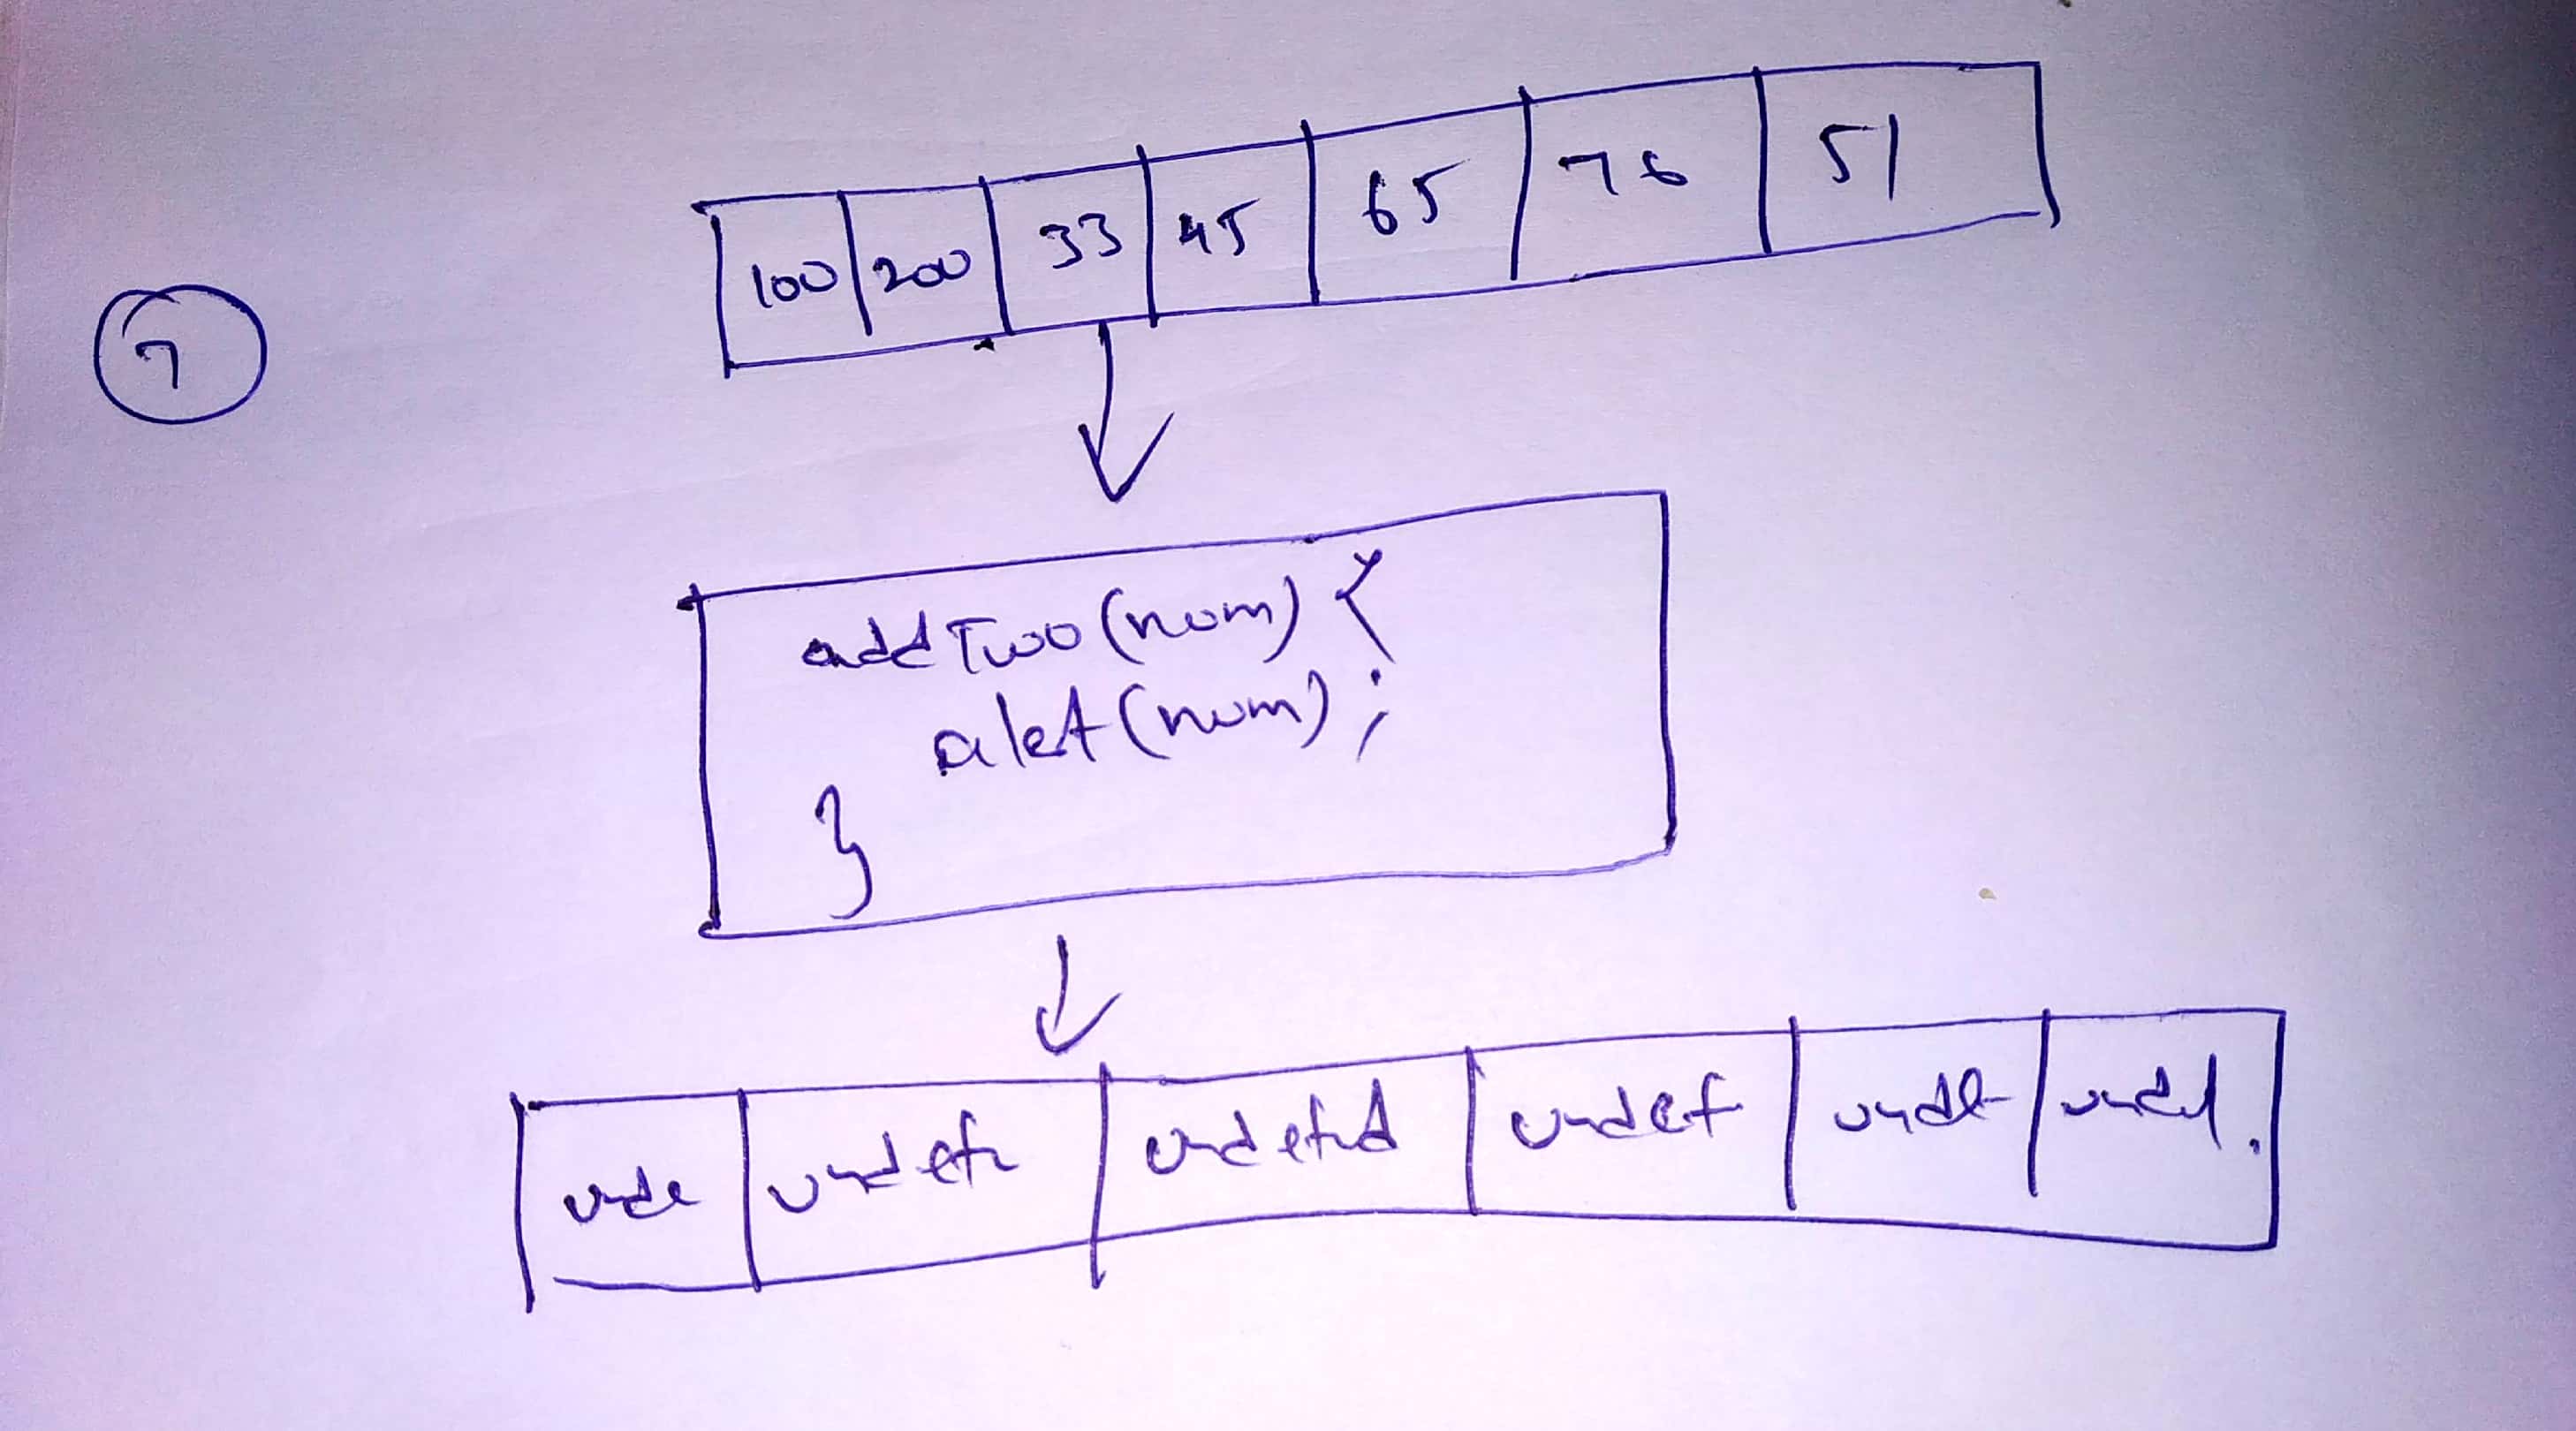 100 200 33 45 65 76 51
7
addTwo(num) {
alet(num);
}
unde undefi undefid undef unde undef.